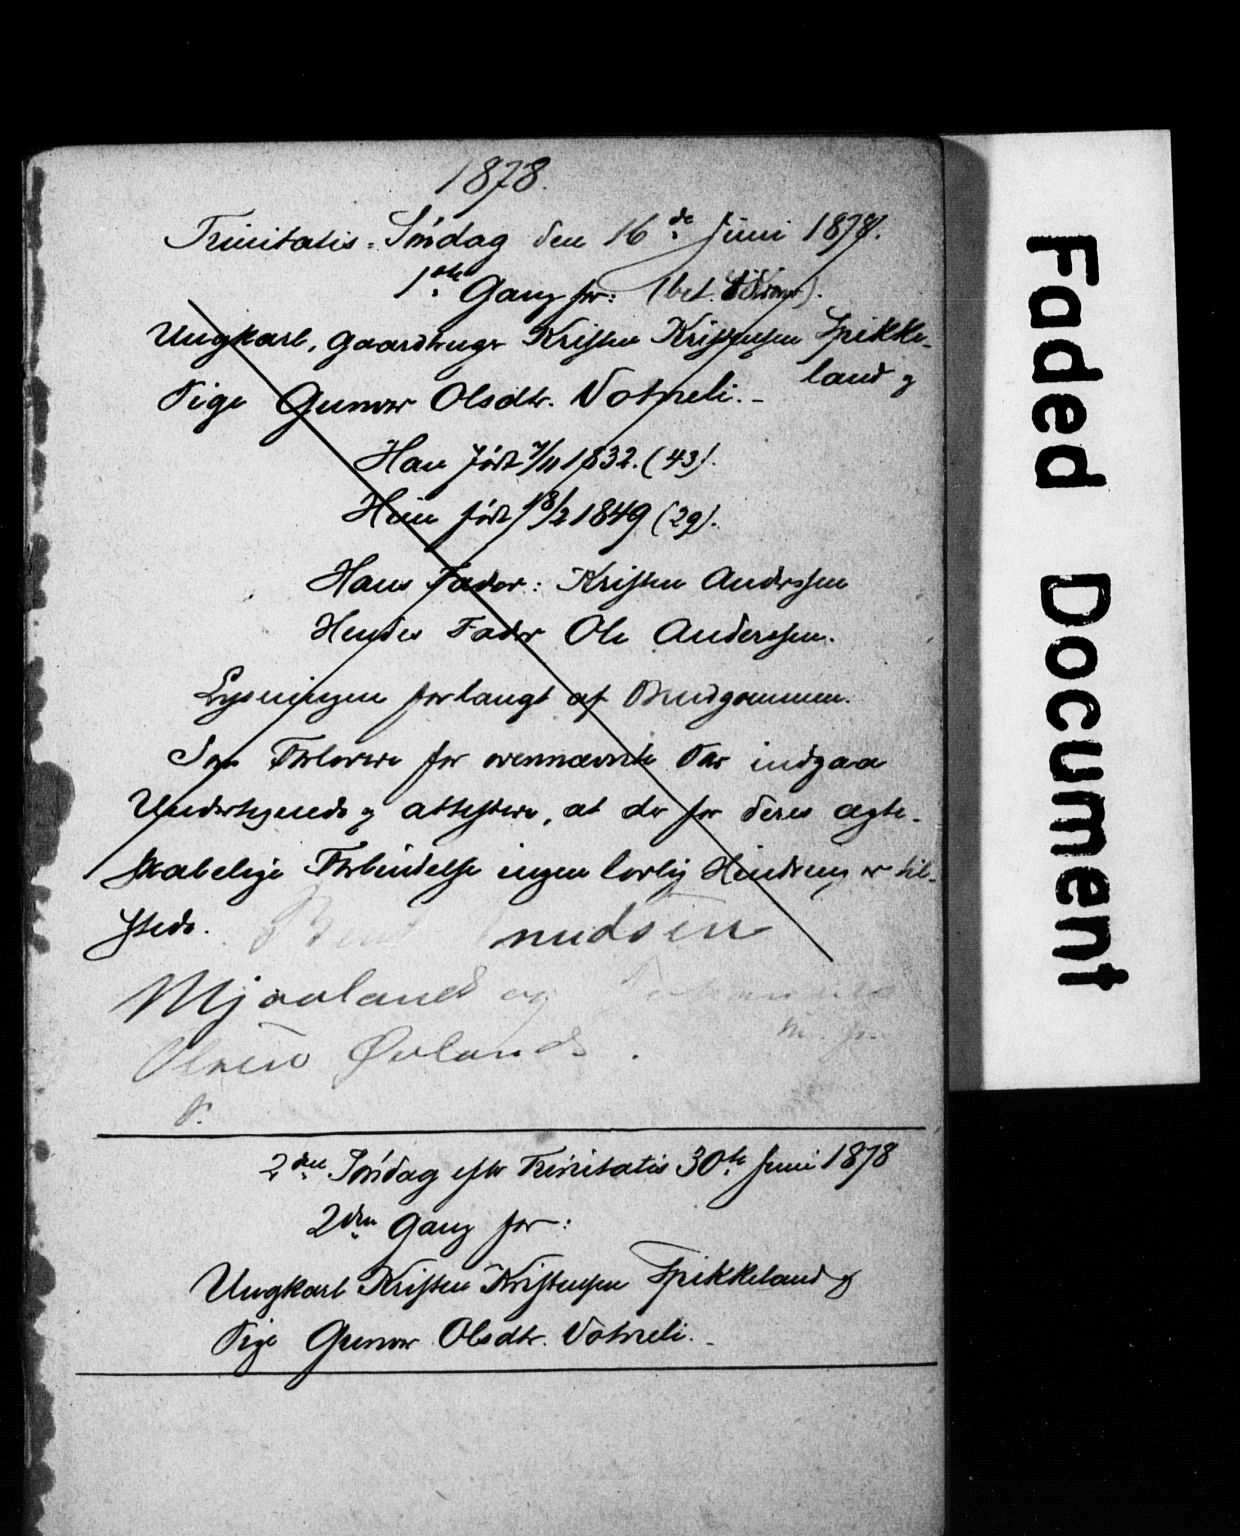 1878.
Trinitatis-Søndag den 16de Juni 1878.
1ste Gang for: (bet.
Ungkarl, Gaardbruger Kristen Kristensen Spikke-
land og
Pige Gunvor Olsdtr. Votneli.-
Han født 7/11 1832. (43).
Hun født 18/2 1849 (29).
Hans Fader: Kristen Anderssen
Hendes Fader Ole Anderssen.
Lysningen forlangt af Brudgommen.
Som Forlovere for ovennævnte Par indgaa
Undertegnede og attestere, at der for deres ægte-
skabelige Forbindelse ingen lovlig Hindring er til-
stede.
Bent Knudsen
Mjaaland og
Øvland.
m. p.
2den Søndag efter Trinitatis 30te Juni 1878
2den Gang for:
Ungkarl Kristen Kristensen Spikkeland og
Pige Gunvor Olsdtr. Votneli.-
Faded Document